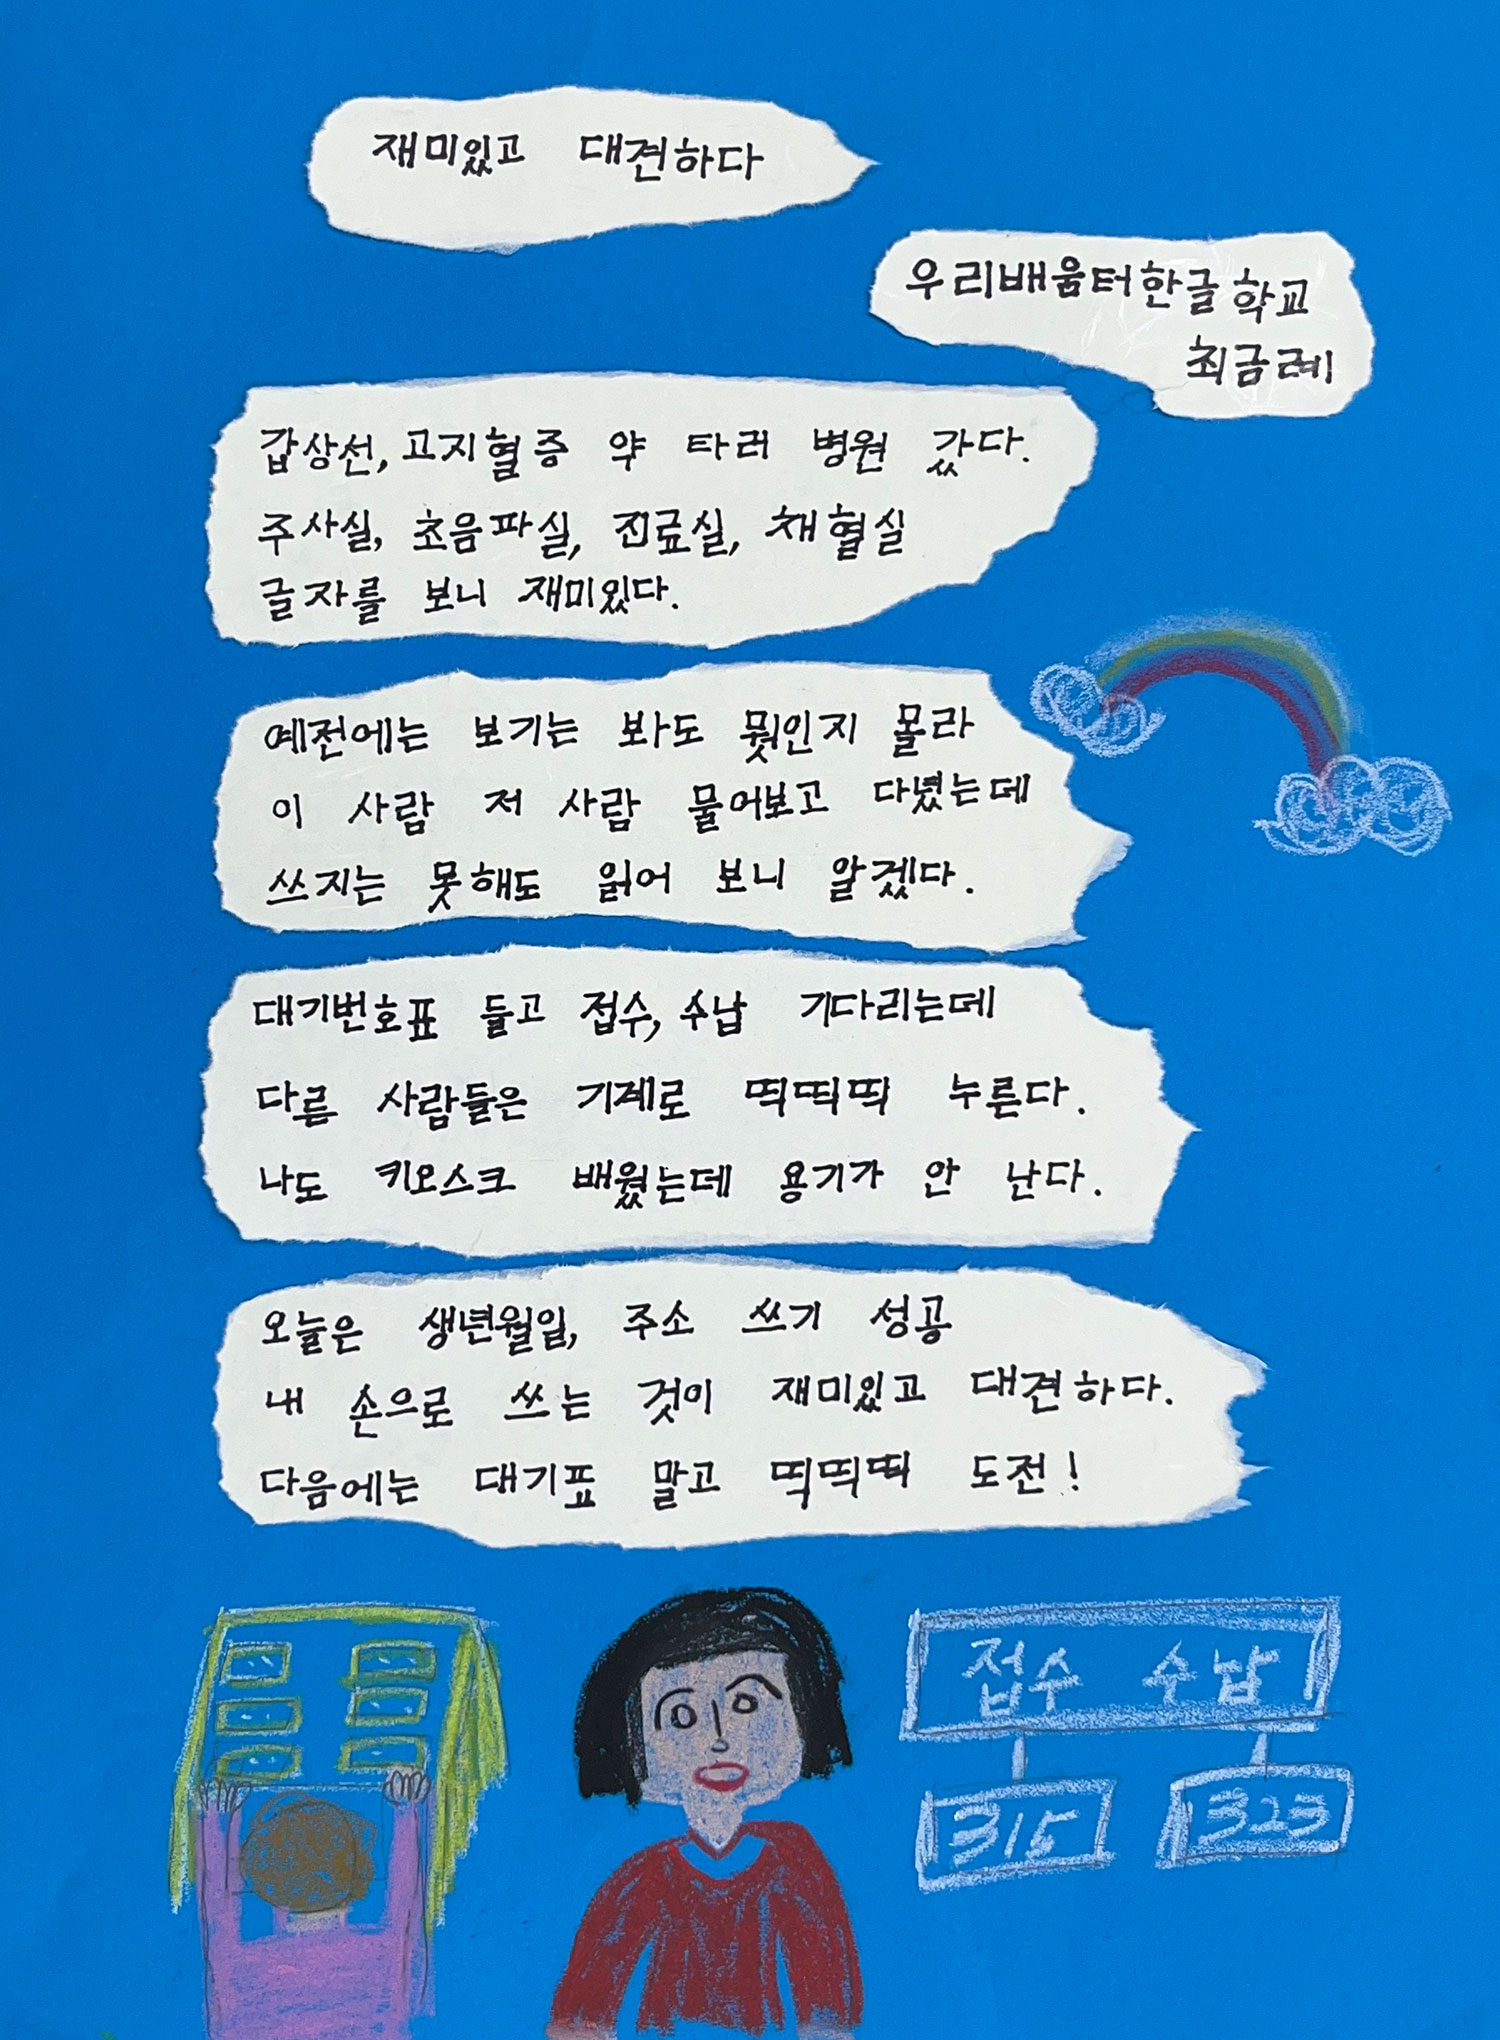 재미있고 대견하다
우리배움터한글학교
최금례
갑상선, 고지혈증 약 타러 병원 갔다.
주사실, 초음파실, 진료실, 채혈실
글자를 보니 재미있다.
예전에는 보기는 봐도 뭣인지 몰라
이 사람 저 사람 물어보고 다녔는데
쓰지는 못해도 읽어 보니 알겠다.
대기번호표 들고 접수, 수납 기다리는데
다른 사람들은 기계로 띡띡띡 누른다.
나도 키오스크 배웠는데 용기가 안 난다.
오늘은 생년월일, 주소 쓰기 성공
내 손으로 쓰는 것이 재미있고 대견하다.
다음에는 대기표 말고 띡띡띡 도전!
접수 수납
315 323